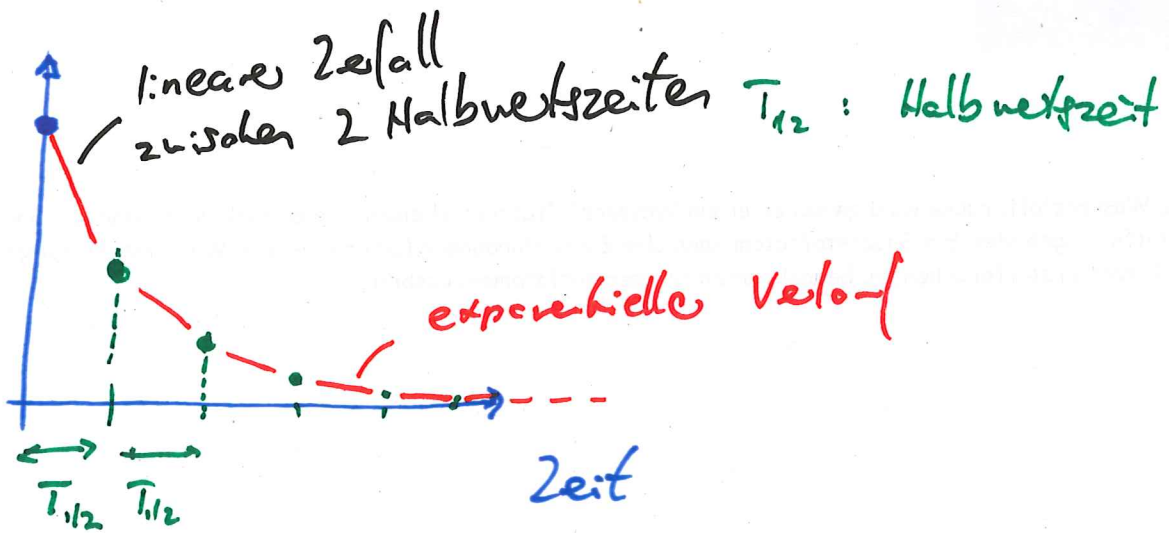 linearer Zerfall
zwischen 2 Halbwertszeiten
T1/2 : Halbwertszeit
exponentieller Verlauf
T1/2 T1/2
Zeit